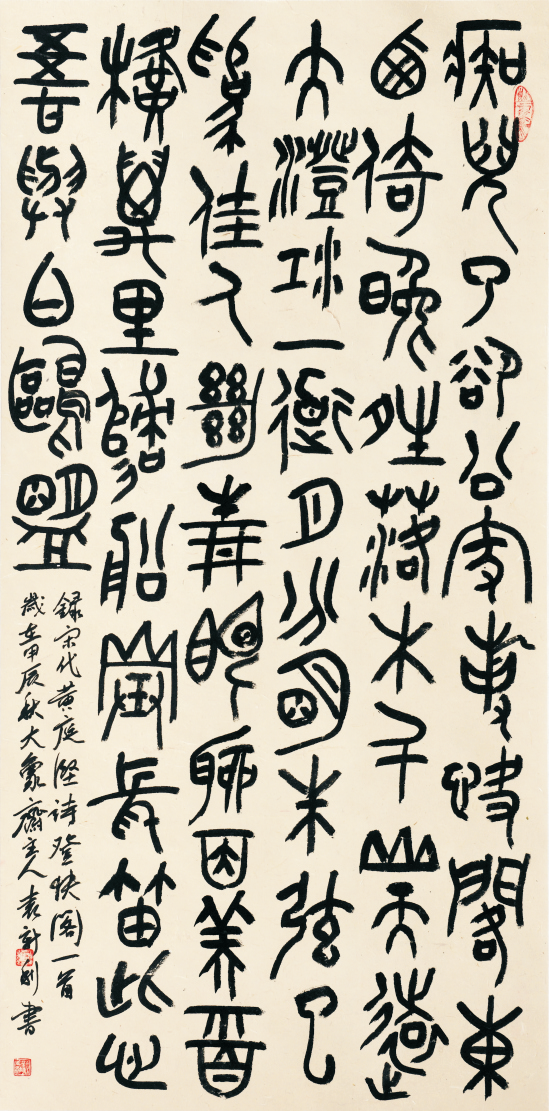 痴兒了卻公家事快閣東
西倚晚晴落木千山天遠
大澄江一道月分明朱弦已
為佳人絕青眼聊因美酒
橫萬里歸船弄長笛此心
吾與白鷗盟
録宋代黄庭堅诗登快阁一首
歲在甲辰秋大象齋主人袁書